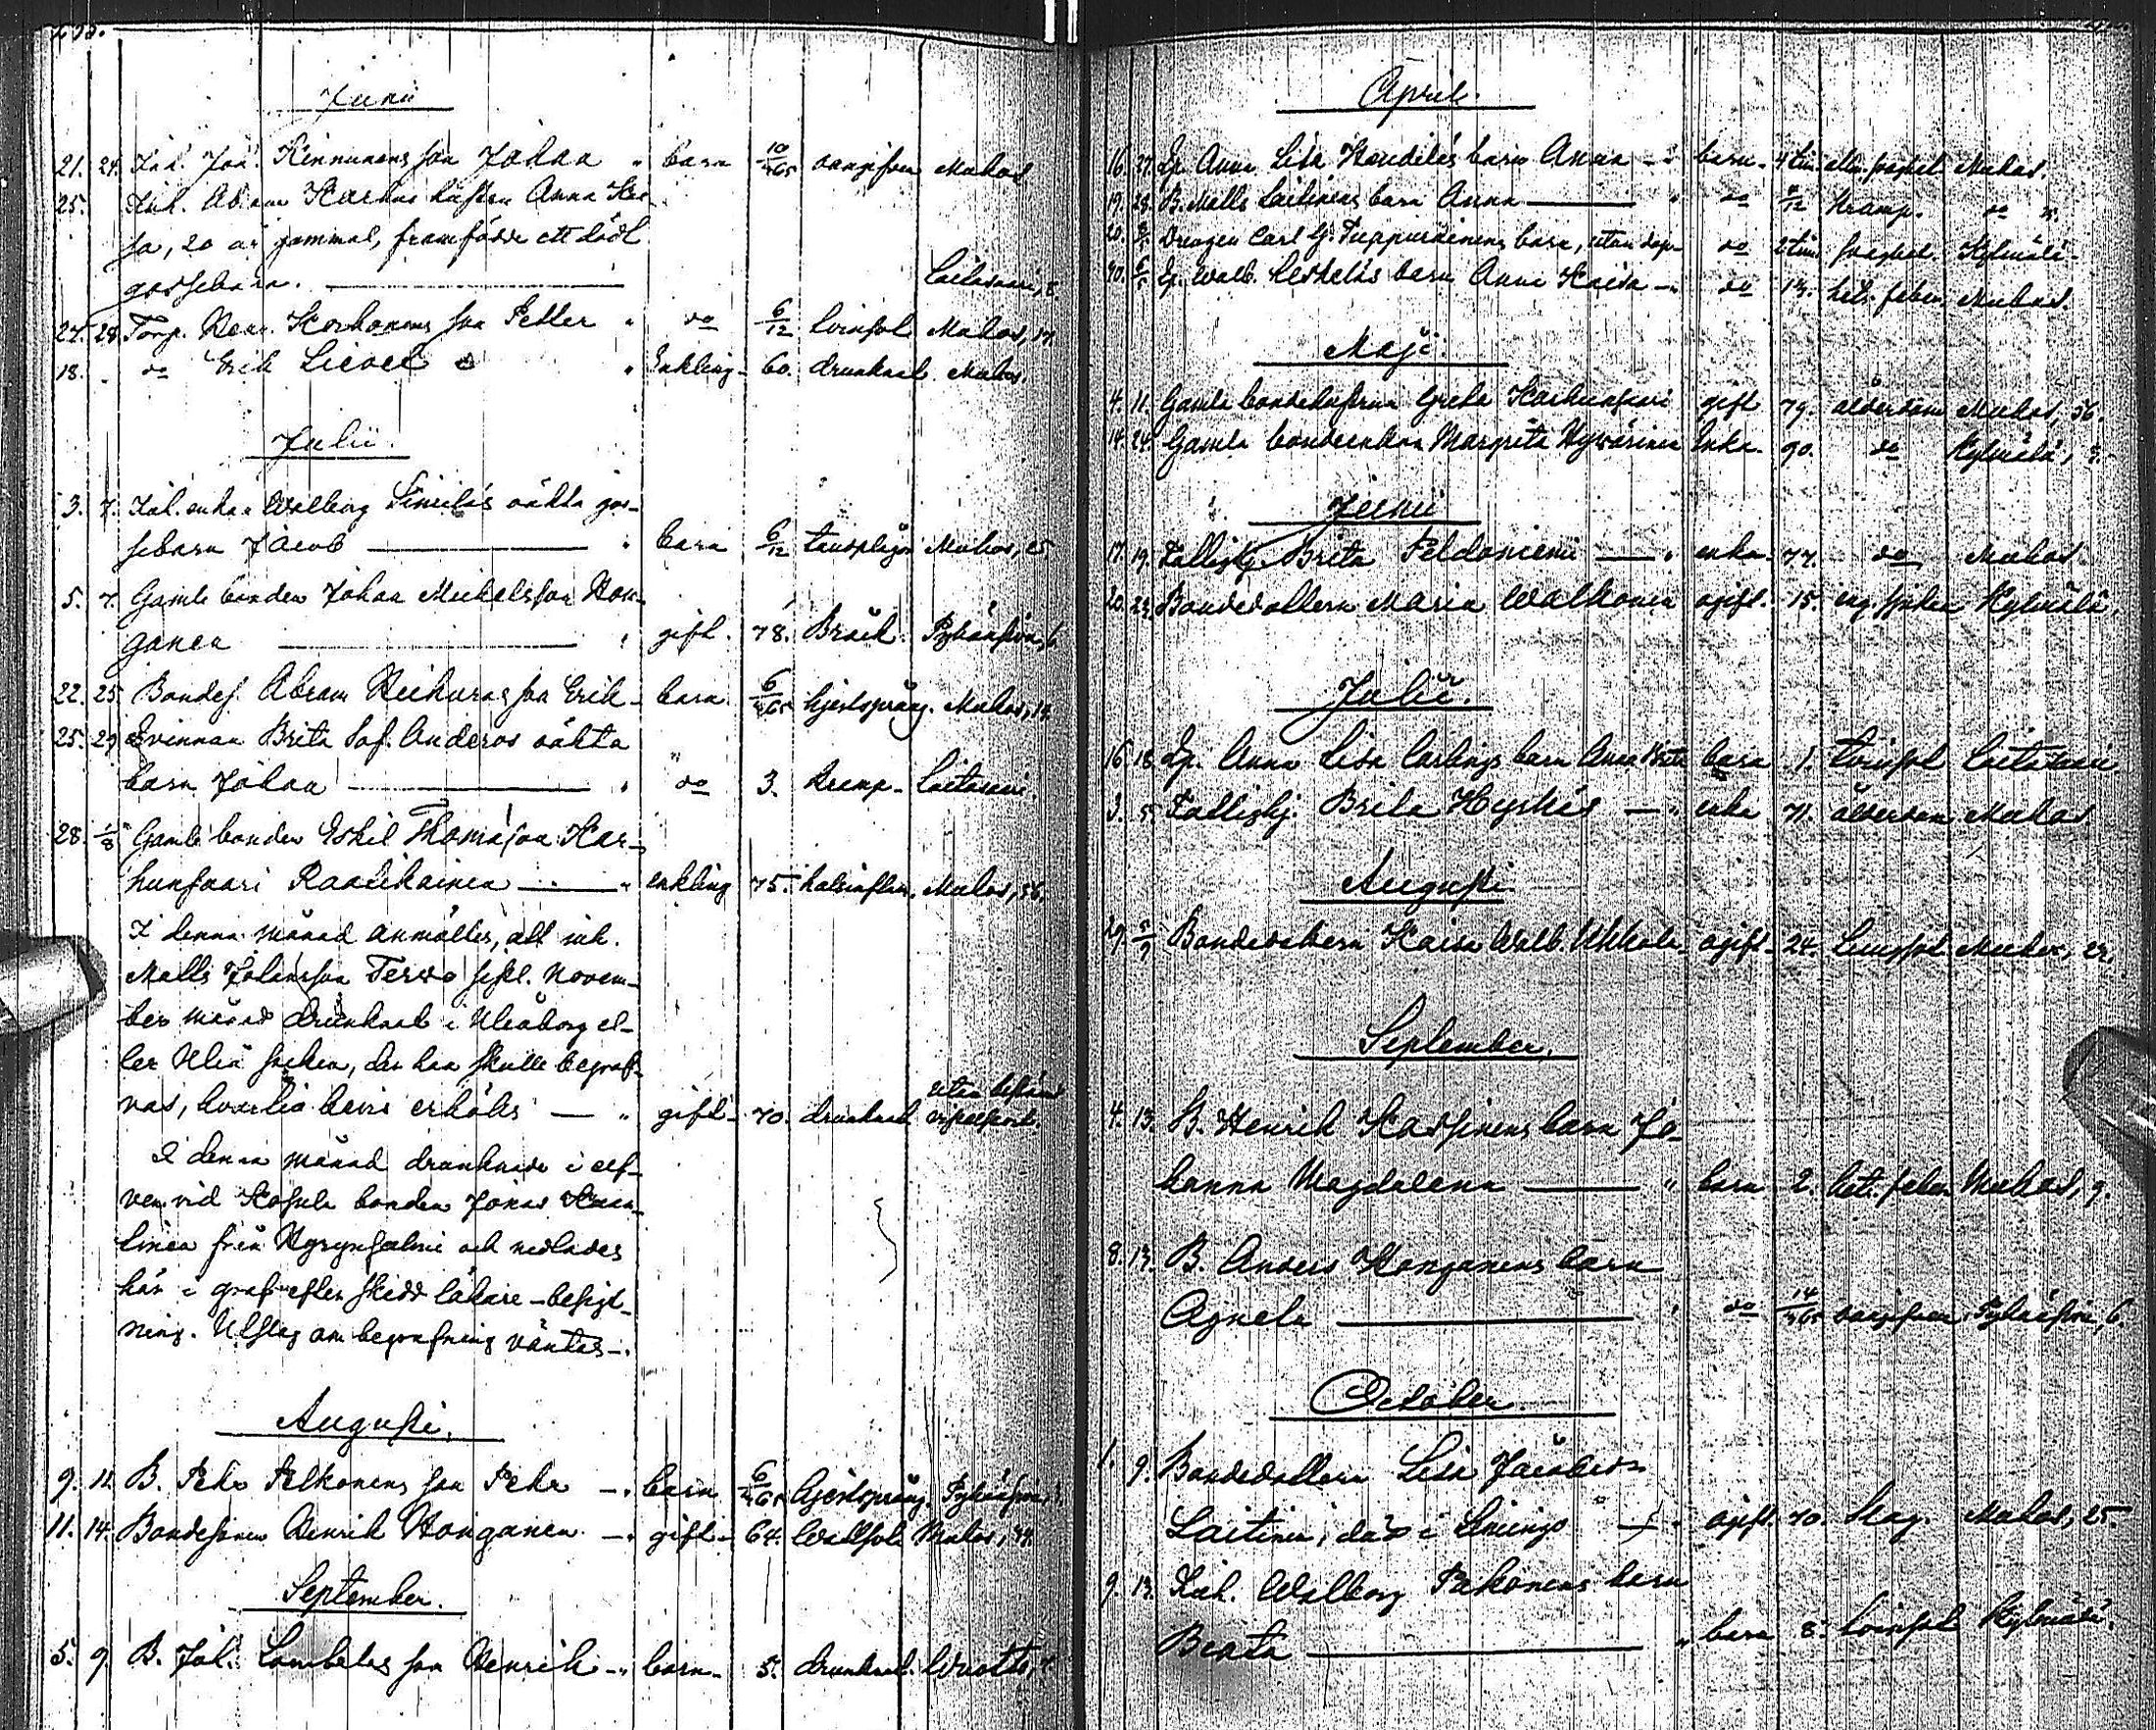 Junii
21. 24. Inh. Joh. Kinnunens son Johan " barn 10/365 oangifven Muhos
25. Inh. Abram Karhus hustru Anna Kai-
sa, 20 år gammal, framfödde ett dödt
gossebarn. Laitasaari, 8.
27. 28. Torp. Henr. Korhonens son Petter " do 6/12 bröstsot Muhos, 17.
18. do Erik Lievet " Enkling 60. drunknat. Muhos.
Julii.
3. 7. Inh. enkan Walborg Similäs oäkta gos-
sebarn Jacob " barn 6/12 Muhos, 25
5. 7. Gamle bonden Johan Michelsson Hon-
ganen " gift. 78. Bråck. Pyhänsivu, 6
22. 25. Bondes. Abram Heikuras son Erik barn 6/365 hjertsprång. Muhos, 14
25. 29. Qvinnan Brita Sof. Anderos oäkta
barn Johan " do 3. kramp. Laitasaari.
28. 1/8 Gamle bonden Eskil Thomasson Kar-
hunsaari Raatikainen " enkling 75. halsinflam. Muhos, 56.
I denna månad anmältes, att inh.
Matts Johansson Tervo sistl. Novem-
ber månad drunknat i Uleåborg el-
ler Uleå socken, der han skulle begraf-
vas, hvarom bevis erhölls " gift 70. drunknat
I denna månad drunknade i elf-
ven vid Kosula bonden Jonas
från Hyrynsalmi och nedlades
här i graf efter skedd läkare-besigt-
ning. Utslag om begrafning väntas.
Augusti.
9. 12. B. Pehr Pelkonens son Pehr barn 6/365 hjertsprång. Pyhänsivu,
11. 14. Bondesonen Henrik Honganen. gift 64. Wattsot Muhos, 44.
September.
5. 9. B. Joh. Lambelas son Henrik " barn 5. drunknat. Wuotto,
April.
16. 27. Lp. Anna Lisa Kondiläs barn Anna barn 4 tim. Muhos.
19. 28. B. Matts Laitinens barn Anna " do /12 Kramp. do
20. Drengen Carl G. Tuppurainens barn, utan dop do 2 tim. Kylmälä.
30. Lp. Walb. Leskeläs barn Anna Kaisa do 13. het. feber Muhos.
Maji.
4. 11. Gamla bondehustrun Greta Karhunsaari gift 79. ålderdom Muhos, 56.
14. 24. Gamla bondeenkan Margreta Hyvärinen Enka. 90. do Kylmälä, 3.
Junii
17. 19. Fattighj. Brita Peldoniemi " enka. 77. do Muhos
20. 23. Bondedottern Maria Walkonen ogift. 15. Kylmälä.
Julii.
16 18 Lp. Anna Lisa Carlings barn Anna Brita barn 1. bröstsot Laitasaari
3. 5. Fattighj. Brita Hyrkäs " enka 71. ålderdom Muhos
Augusti
29. 5/9 Bondedottern Kaisa Walb. Ukkola ogift 24. Lungsot Muhos, 22.
September.
4. 13. B. Henrik Kassinens barn Jo-
hanna Magdalena " barn 2. het. feber Muhos, 9.
8. 13. B. Anders Honganens barn
Agneta " do 14/365 oangifven Pyhänsivu, 6
October
1. 9. Bondedottern Lisa Jacobsdr
Laitinen, död i Liminga ogift. 70. Slag. Muhos, 25.
9. 13. Inh. Walborg Pakonens barn
Beata " barn 8. bröstsot Kylmälä.